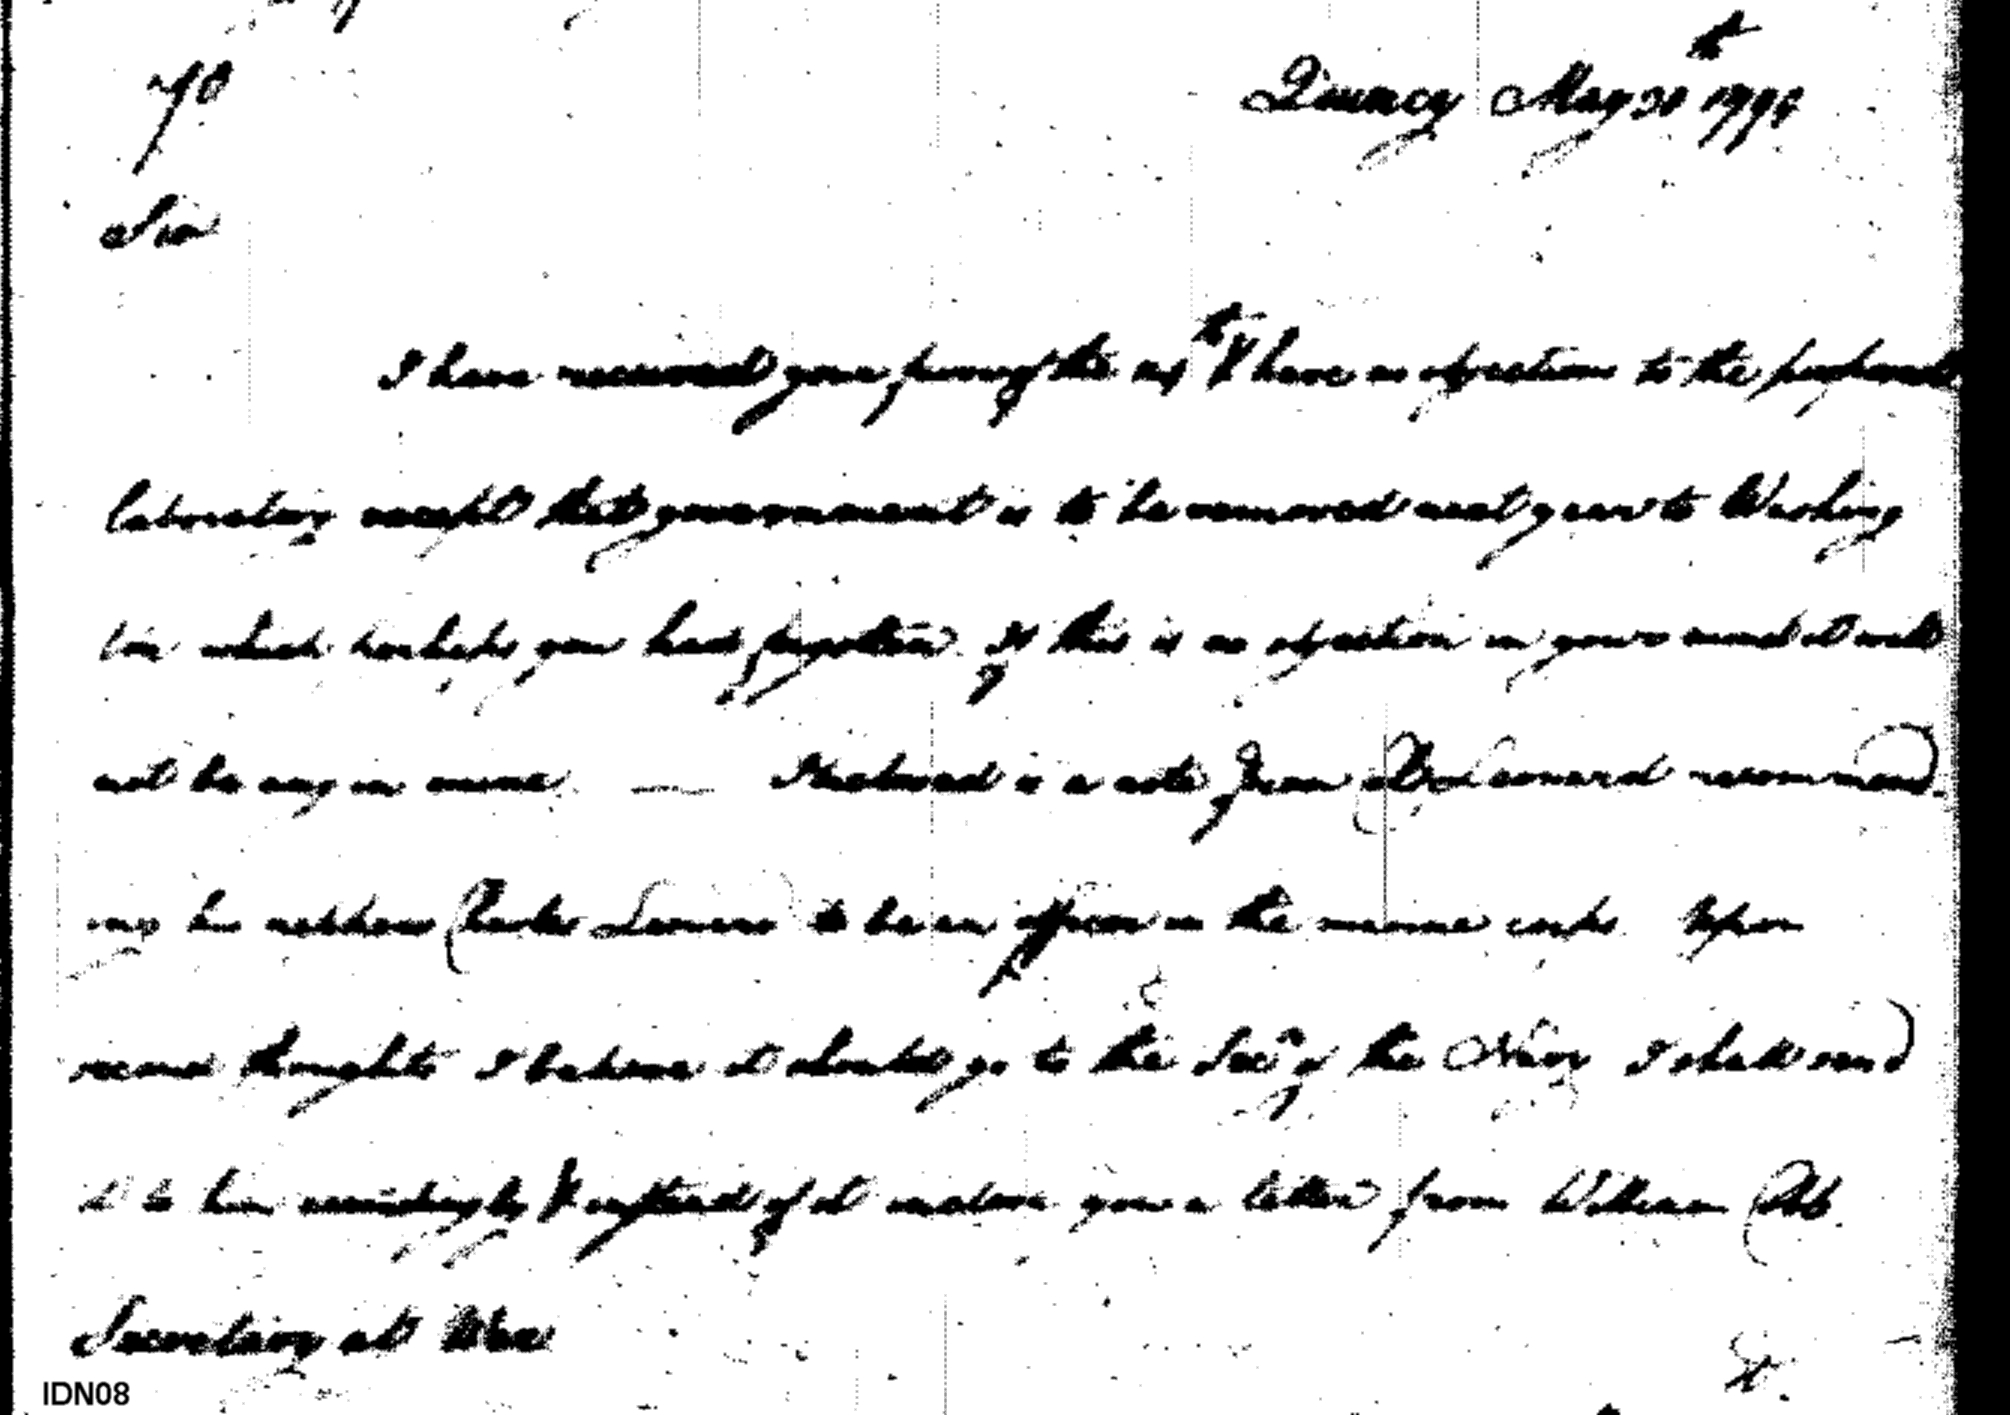 Quincy May 30th 1799
Sir
I have received your favor of the th & have no objection to the proposed
laboratory except that government is to be removed next year to Washing
ton which perhaps you had forgotten. If this is no objection in your mind it will
not be any in mine. — Inclosed is a note from Leonard recommend
ing his nephew Charles Leonard to be an officer in the marine corps Upon
second thoughts I believe it should go to the Secy of the Navy I shall send
it to him accordingly & instead of it inclose you a letter from William Cobb
Secretary at War
IDN08